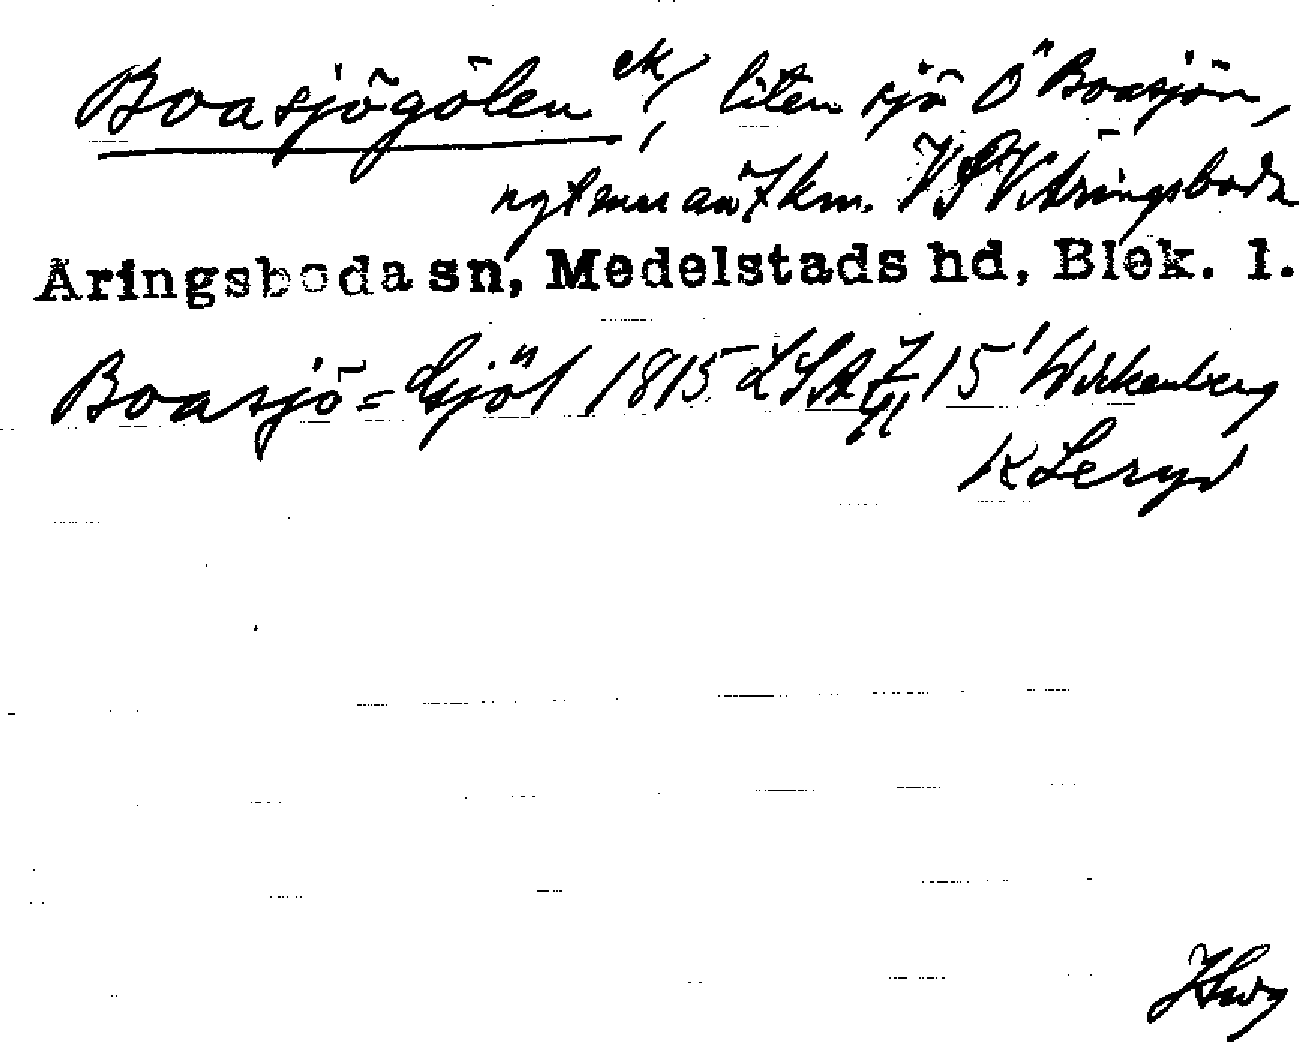 Boasjögölen ek, liten sjö Ö Boasjön,
mer än 7 km. VSV Åringsboda
Åringsboda sn, Medelstads hd, Blek. l.
Boasjö=Gjöl 1815 LSA 15 Wirkenberg
K Leryd